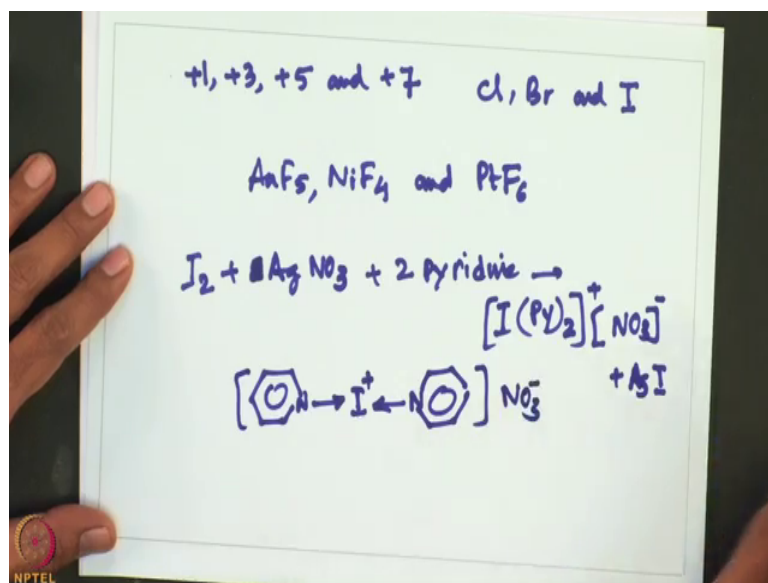 +1, +3, +5 and +7 Cl, Br and I
AuF₅, NiF₄ and PtF₆
I₂ + AgNO₃ + 2 Pyridine →
[I(PY)₂]⁺[NO₃]⁻
+ AgI
[N→I⁺←N] NO₃⁻
NPTEL